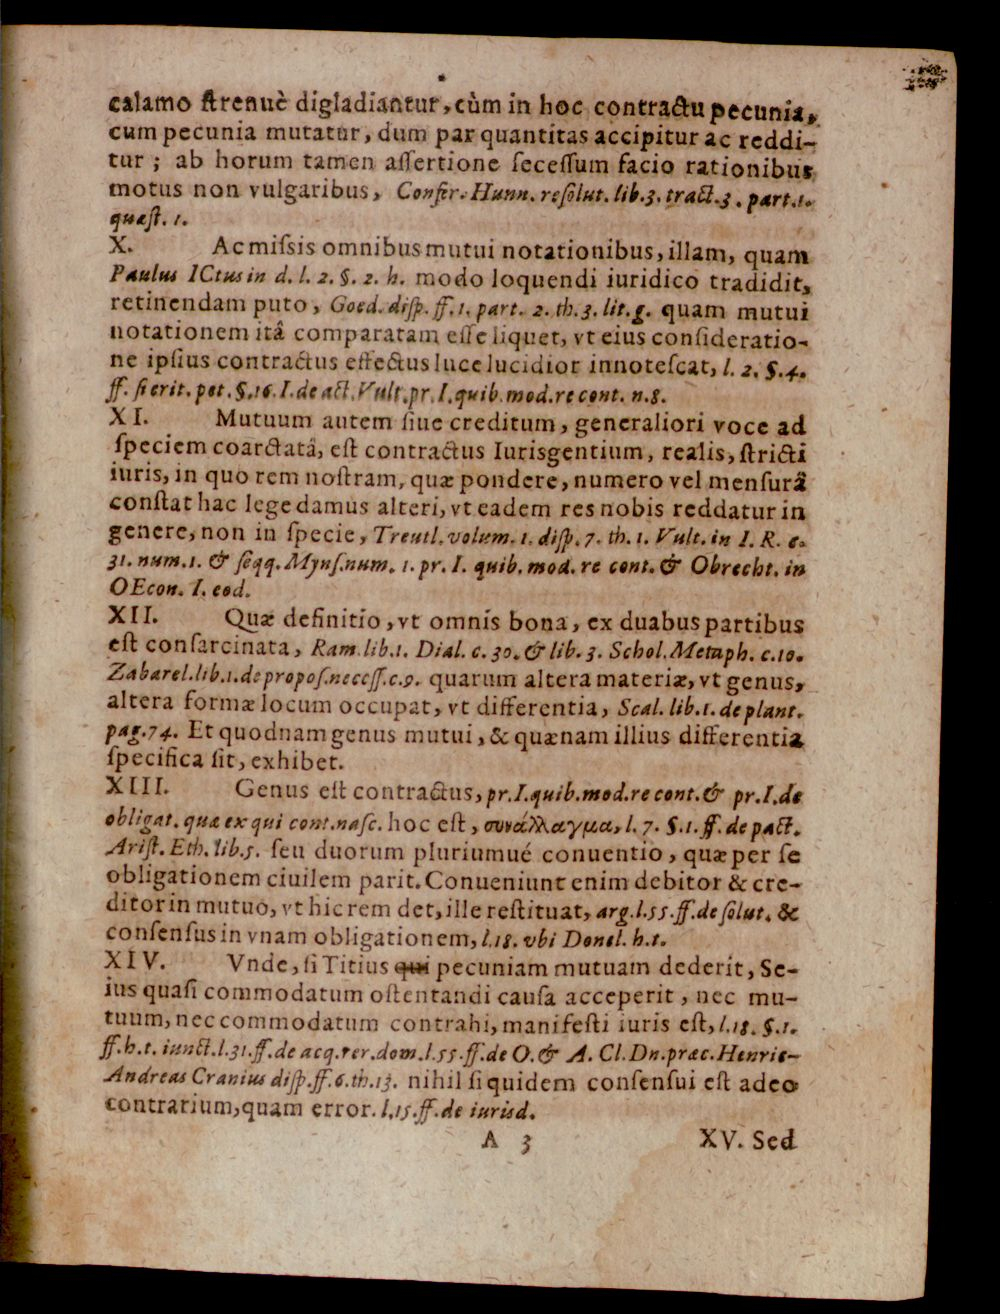 calamo ſtrenuè digladiantur, cùm in hoc contractu pecunia,
cum pecunia mutatur, dum par quantitas accipitur ac reddi-
tur ; ab horum tamen aſſertione ſeceſſum facio rationibus
motus non vulgaribus, Confer. Hunn. reſolut. lib. 3. tract. 3. part. 1.
quæſt. 1.
X. Ac miſsis omnibus mutui notationibus, illam, quam
Paulus ICtus in d. l. 2. §. 2. h. modo loquendi iuridico tradidit,
retinendam puto, Goed. diſp. ff. 1. part. 2. th. 3. lit. g. quam mutui
notationem itâ comparatam eſſe liquet, vt eius conſideratio-
ne ipſius contractus effectus luce lucidior innoteſcat, l. 2. §. 4.
ff. ſi erit. pet. §. 16. I. de act. Vult. pr. I. quib. mod. re cont. n. 8.
XI. Mutuum autem ſiue creditum, generaliori voce ad
ſpeciem coarctatâ, eſt contractus Iurisgentium, realis, ſtricti
iuris, in quo rem noſtram, quæ pondere, numero vel menſurâ
conſtat hac lege damus alteri, vt eadem res nobis reddatur in
genere, non in ſpecie, Treutl. volum. 1. diſp. 7. th. 1. Vult. in I. R. c.
31. num. 1. & ſeqq. Mynſ. num. 1. pr. I. quib. mod. re cont. & Obrecht. in
OEcon. I. eod.
XII. Quæ definitio, vt omnis bona, ex duabus partibus
eſt conſarcinata, Ram. lib. 1. Dial. c. 30. & lib. 3. Schol. Metaph. c. 10.
Zabarel. lib. 1. de propoſ. neceſſ. c. 9. quarum altera materiæ, vt genus,
altera formæ locum occupat, vt differentia, Scal. lib. 1. de plant.
pag. 74. Et quodnam genus mutui, & quænam illius differentia
ſpecifica ſit, exhibet.
XIII. Genus eſt contractus, pr. I. quib. mod. re cont. & pr. I. de
obligat. quæ ex qui cont. naſc. hoc eſt, συνάλλαγμα, l. 7. §. 1. ff. de pact.
Ariſt. Eth. lib. 5. ſeu duorum pluriumué conuentio, quæ per ſe
obligationem ciuilem parit. Conueniunt enim debitor & cre-
ditor in mutuo, vt hic rem det, ille reſtituat, arg. l. 55. ff. de ſolut. &
conſenſus in vnam obligationem, l. 18. vbi Donel. h. t.
XIV. Vnde, ſi Titius qui pecuniam mutuam dederit, Se-
ius quaſi commodatum oſtentandi cauſa acceperit, nec mu-
tuum, nec commodatum contrahi, manifeſti iuris eſt, l. 18. §. 1.
ff. h. t. iunct. l. 31. ff. de acq. rer. dom. l. 55. ff. de O. & A. Cl. Dn. præc. Henric-
Andreas Cranius diſp. ff. 6. th. 13. nihil ſiquidem conſenſui eſt adeo
contrarium, quam error. l. 15. ff. de iurisd.
A 3 XV. Sed